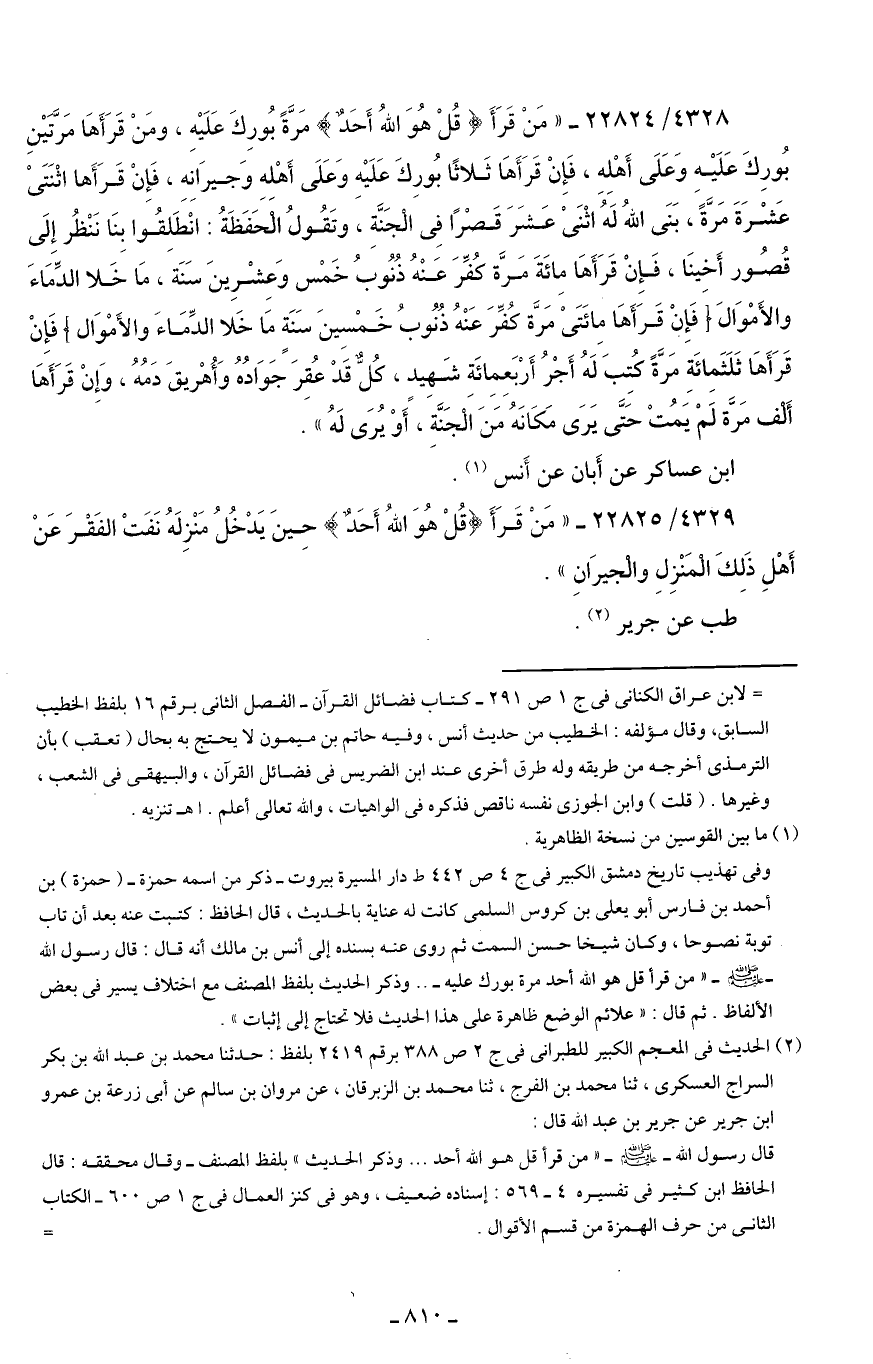 ٤٣٢٨/ ٢٢٨٢٤ ـ « مَنْ قَرَأَ ﴿ قُلْ هُوَ اللهُ أَحَدٌ ﴾ مَرَّةً بُورِكَ عَلَيْهِ ، ومَنْ قَرَأَهَا مَرَّتَيْنِ
بُورِكَ عَلَيْهِ وَعَلَى أَهْلِهِ ، فَإِنْ قَرَأَهَا ثَلاثًا بُورِكَ عَلَيْهِ وَعَلَى أَهْلِهِ وَجِيرَانِهِ ، فَإِنْ قَرَأَهَا اثْنَتَىْ
عَشْرَةَ مَرَّةً ، بَنَى اللهُ لَهُ اثْنَىْ عَشَرَ قَصْرًا فِى الْجَنَّةِ ، وتَقُولُ الْحَفَظَةُ : انْطَلِقُوا بِنَا نَنْظُرْ إِلَى
قُصُورِ أَخِينَا ، فَإِنْ قَرَأَهَا مِائَةَ مَرَّةٍ كُفِّرَ عَنْهُ ذُنُوبُ خَمْسٍ وَعِشْرِينَ سَنَةً ، مَا خَلا الدِّمَاءَ
والأَمْوَالَ { فَإِنْ قَرَأَهَا مِائَتَىْ مَرَّةٍ كُفِّرَ عَنْهُ ذُنُوبُ خَمْسِينَ سَنَةً مَا خَلا الدِّمَاءَ والأَمْوَالَ } فَإِنْ
قَرَأَهَا ثَلَثَمِائَةِ مَرَّةً كُتِبَ لَهُ أَجْرُ أَرْبَعِمِائَةِ شَهِيدٍ ، كُلٌّ قَدْ عُقِرَ جَوَادُهُ وَأُهْرِيقَ دَمُهُ ، وَإِنْ قَرَأَهَا
أَلْفَ مَرَّةٍ لَمْ يَمُتْ حَتَّى يَرَى مَكَانَهُ مَنَ الْجَنَّةِ ، أَوْ يُرَى لَهُ » .
ابن عساكر عن أَبان عن أَنس (١) .
٤٣٢٩/ ٢٢٨٢٥ ـ « مَنْ قَرَأَ ﴿قُلْ هُوَ اللهُ أَحَدٌ ﴾ حِينَ يَدْخُلُ مَنْزِلَهُ نَفَتْ الفَقْرَ عَنْ
أَهْلِ ذَلِكَ الْمَنْزِلِ والْجِيرَانِ » .
طب عن جرير (٢) .
= لابن عراق الكنانى فى ج ١ ص ٢٩١ ـ كتاب فضائل القرآن ـ الفصل الثانى برقم ١٦ بلفظ الخطيب
السابق، وقال مؤلفه : الخطيب من حديث أنس ، وفيه حاتم بن ميمون لا يحتج به بحال ( تعقب ) بأن
الترمذى أخرجه من طريقه وله طرق أخرى عند ابن الضريس فى فضائل القرآن ، والبيهقى فى الشعب ،
وغيرها . ( قلت ) وابن الجوزى نفسه ناقض فذكره فى الواهيات ، والله تعالى أعلم . ا هـ تنزيه .
(١) ما بين القوسين من نسخة الظاهرية .
وفى تهذيب تاريخ دمشق الكبير فى ج ٤ ص ٤٤٢ ط دار المسيرة بيروت ـ ذكر من اسمه حمزة ـ ( حمزة ) بن
أحمد بن فارس أبو يعلى بن كروس السلمى كانت له عناية بالحديث ، قال الحافظ : كتبت عنه بعد أن تاب
توبة نصوحا ، وكان شيخا حسن السمت ثم روى عنه بسنده إلى أنس بن مالك أنه قال : قال رسول الله
ـ ﷺ ـ « من قرأ قل هو الله أحد مرة بورك عليه ـ .. وذكر الحديث بلفظ المصنف مع اختلاف يسير فى بعض
الألفاظ . ثم قال : « علائم الوضع ظاهرة على هذا الحديث فلا تحتاج إلى إثبات » .
(٢) الحديث فى المعجم الكبير للطبرانى فى ج ٢ ص ٣٨٨ برقم ٢٤١٩ بلفظ : حدثنا محمد بن عبد الله بن بكر
السراج العسكرى ، ثنا محمد بن الفرج ، ثنا محمد بن الزبرقان ، عن مروان بن سالم عن أبى زرعة بن عمرو
ابن جرير عن جرير بن عبد الله قال :
قال رسول الله ـ ﷺ ـ « من قرأ قل هو الله أحد ... وذكر الحديث » بلفظ المصنف ـ وقال محققه : قال
الحافظ ابن كثير فى تفسيره ٤ ـ ٥٦٩ : إسناده ضعيف ، وهو فى كنز العمال فى ج ١ ص ٦٠٠ ـ الكتاب
الثانى من حرف الهمزة من قسم الأقوال . =
ـ ٨١٠ ـ